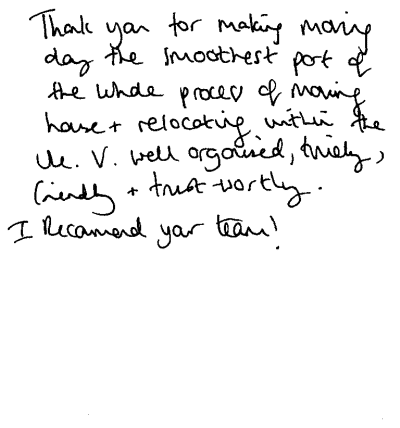 Thank you for making moving
day the smoothest part of
the whole process of moving
house + relocating within the
UK. V. well organised, timely,
friendly + trust-worthy.
I Recommend your team!